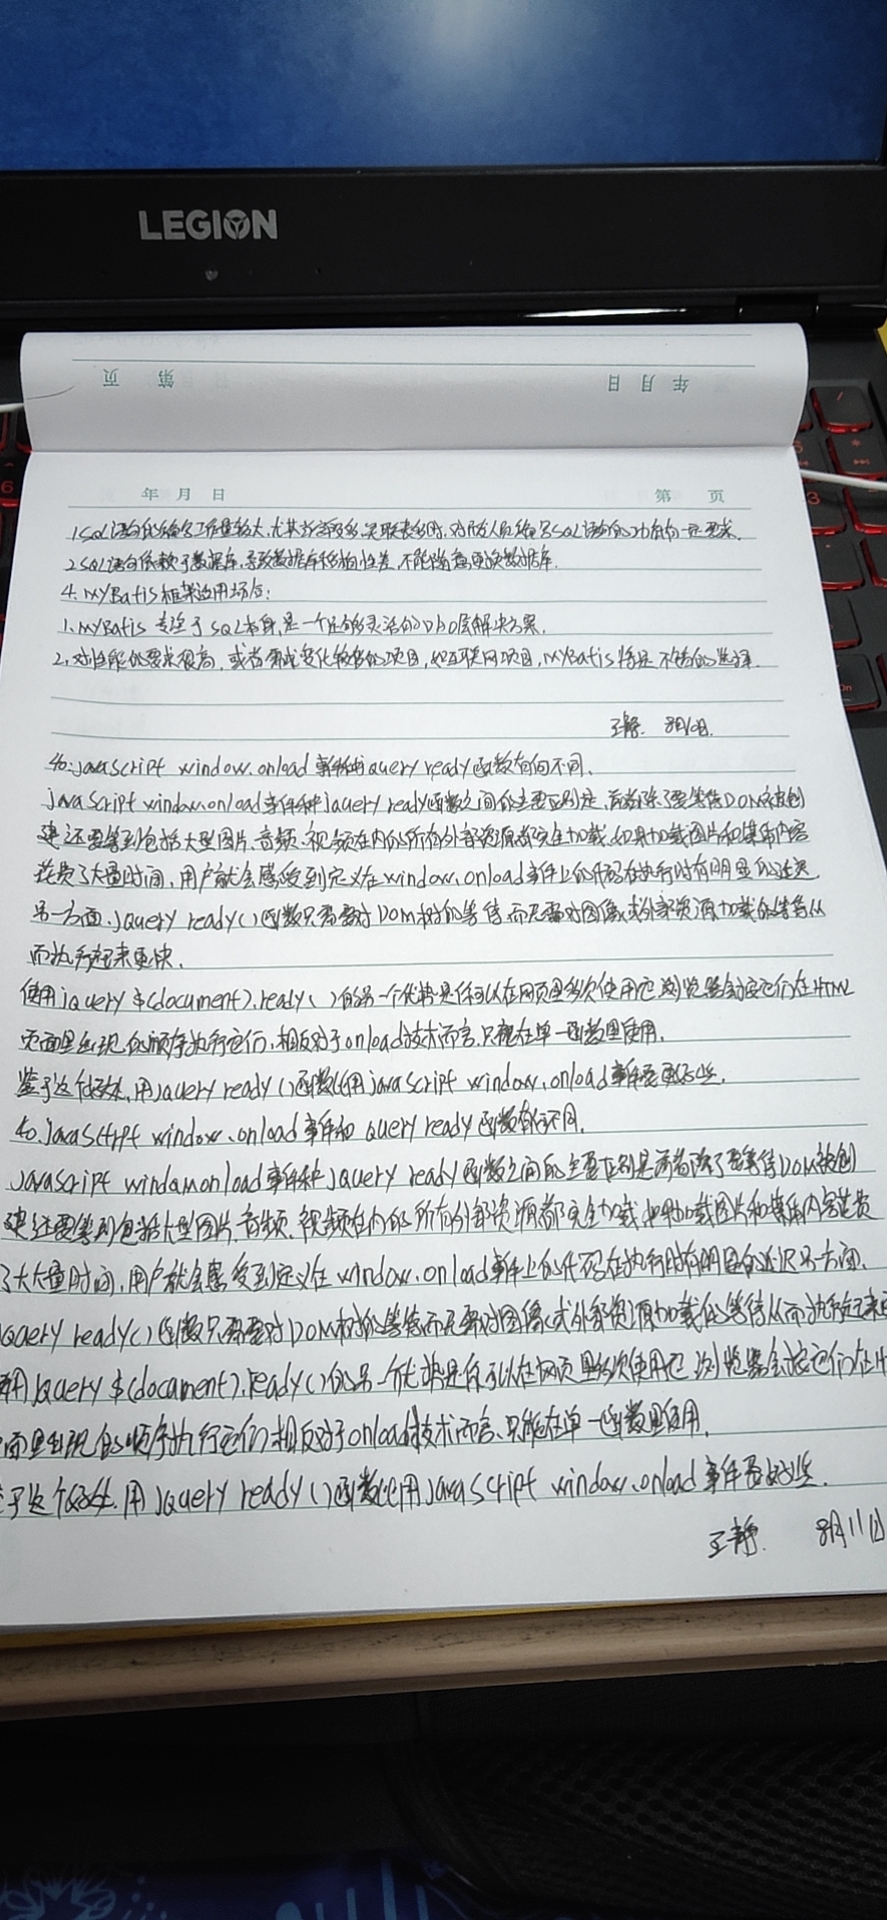 LEGION
年 月 日
第 页
年 月 日 第 页
1.SQL语句的编写工作量较大,尤其当字段多,关联表多时,对开发人员编写SQL语句的功底有一定要求.
2.SQL语句依赖于数据库,导致数据库移植性差,不能随意更换数据库.
4.MyBatis框架适用场合:
1.MyBatis 专注于SQL本身,是一个足够灵活的DAO层解决方案.
2.对性能的要求很高,或者需求变化较多的项目,如互联网项目,MyBatis将是不错的选择.
王静. 8月10日.
40.javascript window.onload 事件和jquery ready函数有何不同.
javascript window.onload事件和jquery ready函数之间的主要区别是,前者除了要等待DOM被创
建还要等到包括大型图片、音频、视频在内的所有外部资源都完全加载,如果加载图片和媒体内容
花费了大量时间,用户就会感受到定义在window.onload事件上的代码在执行时有明显的延迟
另一方面.jquery ready()函数只需要对DOM树的等待而无需对图像或外部资源加载的等待从
而执行起来更快.
使用jquery $(document).ready()的另一个优势是你可以在网页里多次使用它浏览器会按它们在HTML
页面里出现的顺序执行它们,相反对于onload技术而言,只能在单一函数里使用.
鉴于这个好处,用jquery ready()函数比用javascript window.onload事件要更好些.
40.javascript window.onload事件和 query ready函数有何不同.
javascript windamonload事件和jquery ready函数之间的主要区别是前者除了要等待DOM被创
建还要等到包括大型图片,音频,视频在内的所有外部资源都完全加载如果加载图片和媒体内容花费
了大大量时间,用户就会感受到定义在window.onload事件上的代码在执行时有明显的延迟另一方面.
query ready()函数只需要对DOM树的等待而无需对图像或外部资源加载的等待从而执行起来
用jquery $(document).ready()的另一个优势是你可以在网页里多次使用它浏览器会按它们在H
面里出现的顺序执行它们相反对于onload技术而言、只能在单一函数里使用.
于这个好处.用jquery ready()函数比用javascript window.onload事件要好些.
王静. 8月11日